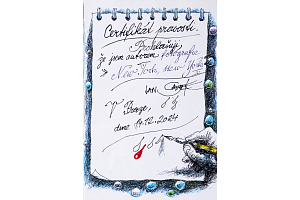 Certifikát pravosti.
Prohlašuji,
že jsem autorem fotografie
"New York, New York"
V Praze,
dne 14.12.2024